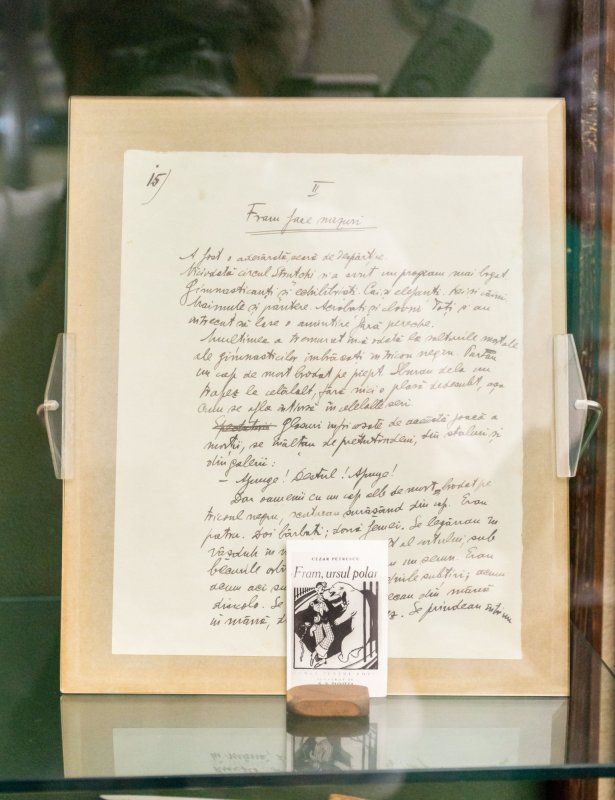 15)
II
Fram face nazuri
A fost o adevărată seară de despărțire.
Niciodată circul Strutchi n'a avut un program mai bogat
Gimnasticanți și echilibriști. Cai și elefanți, lei și câini
Maimuțe și pantere. Acrobați și clovni Toți și au
întrecut să lase o amintire fără pereche.
Mulțimea a tremurat încă odată la salturile mortale
ale gimnasticilor îmbrăcați în tricou negru. Purtau
un cap de mort brodat pe piept. Sburau dela un
trapez la celălalt, fără nici o plasă dedesubt, așa
cum se afla întinsă în celelalte seri.
Spectatorii Glasuri înfricoșate de această joacă a
morții, se înălțau de pretutindeni, din staluri și
din galerii:
— Ajunge! Destul! Ajunge!
Dar oamenii cu un cap alb de mort brodat pe
tricoul negru, continuau surâzând din cap. Erau
patru. Doi bărbați; două femei. Se legănau în
văzduh în al cortului, sub
becurile un scaun. Erau
acum aci subțiri; acum
dincolo. Se din mână
în mână, Se prindeau într'un
CEZAR PETRESCU
Fram, ursul polar